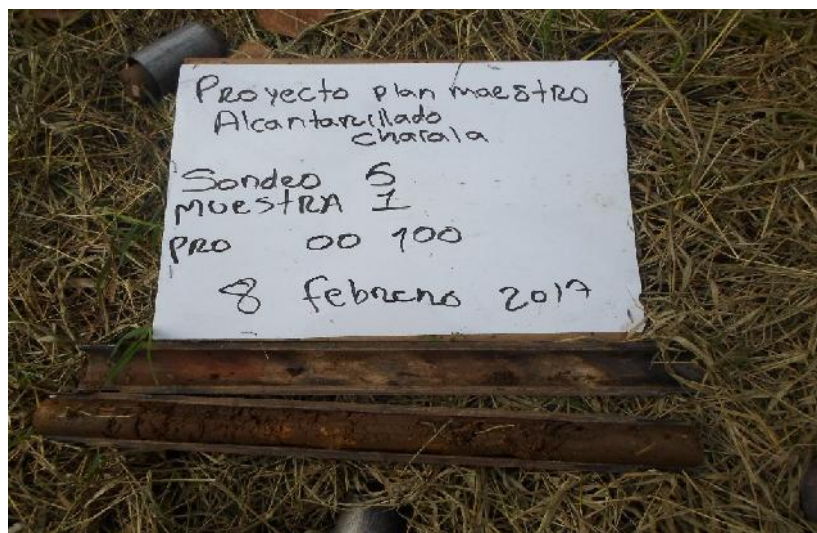 Proyecto plan maestro
Alcantarillado
charala
Sondeo 5
muestra 1
PRO 00 100
8 febrero 2017